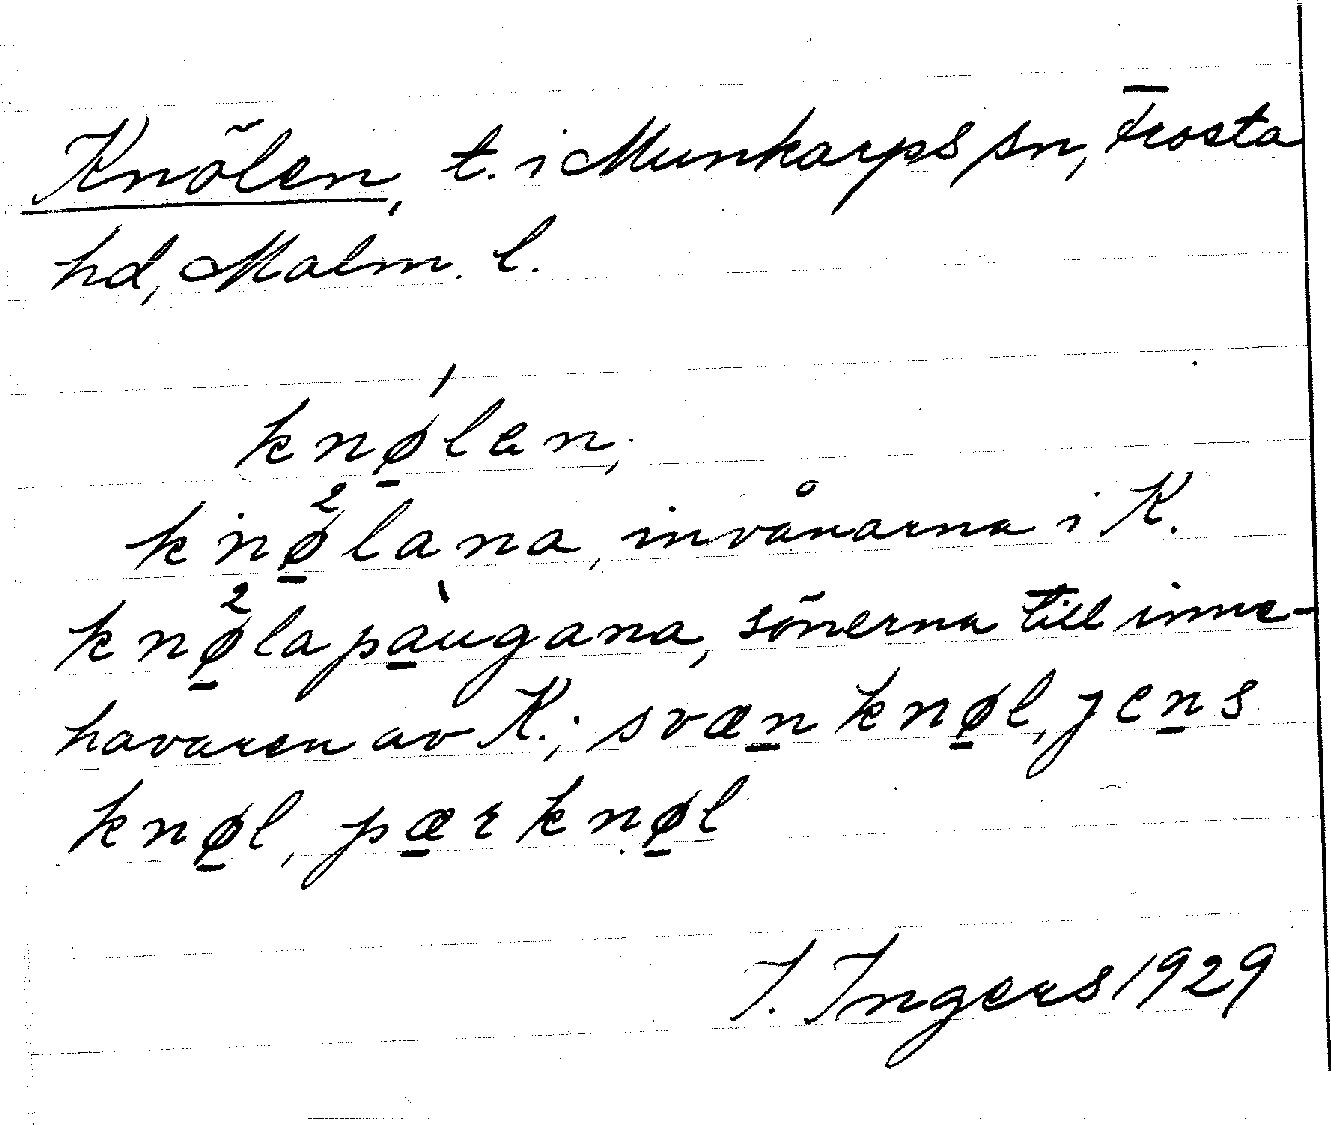 Knölen, t. i Munkarps sn, Frosta
hd, Malm. l.
knǿ̱len,
knø̱²lana, invånarna i K.
knø̱²lapa̱ùgana, sönerna till inne-
havaren av K.; svæ̱n knø̱l, jeṉs
knø̱l, pæ̱r knø̱l
I. Ingers 1929